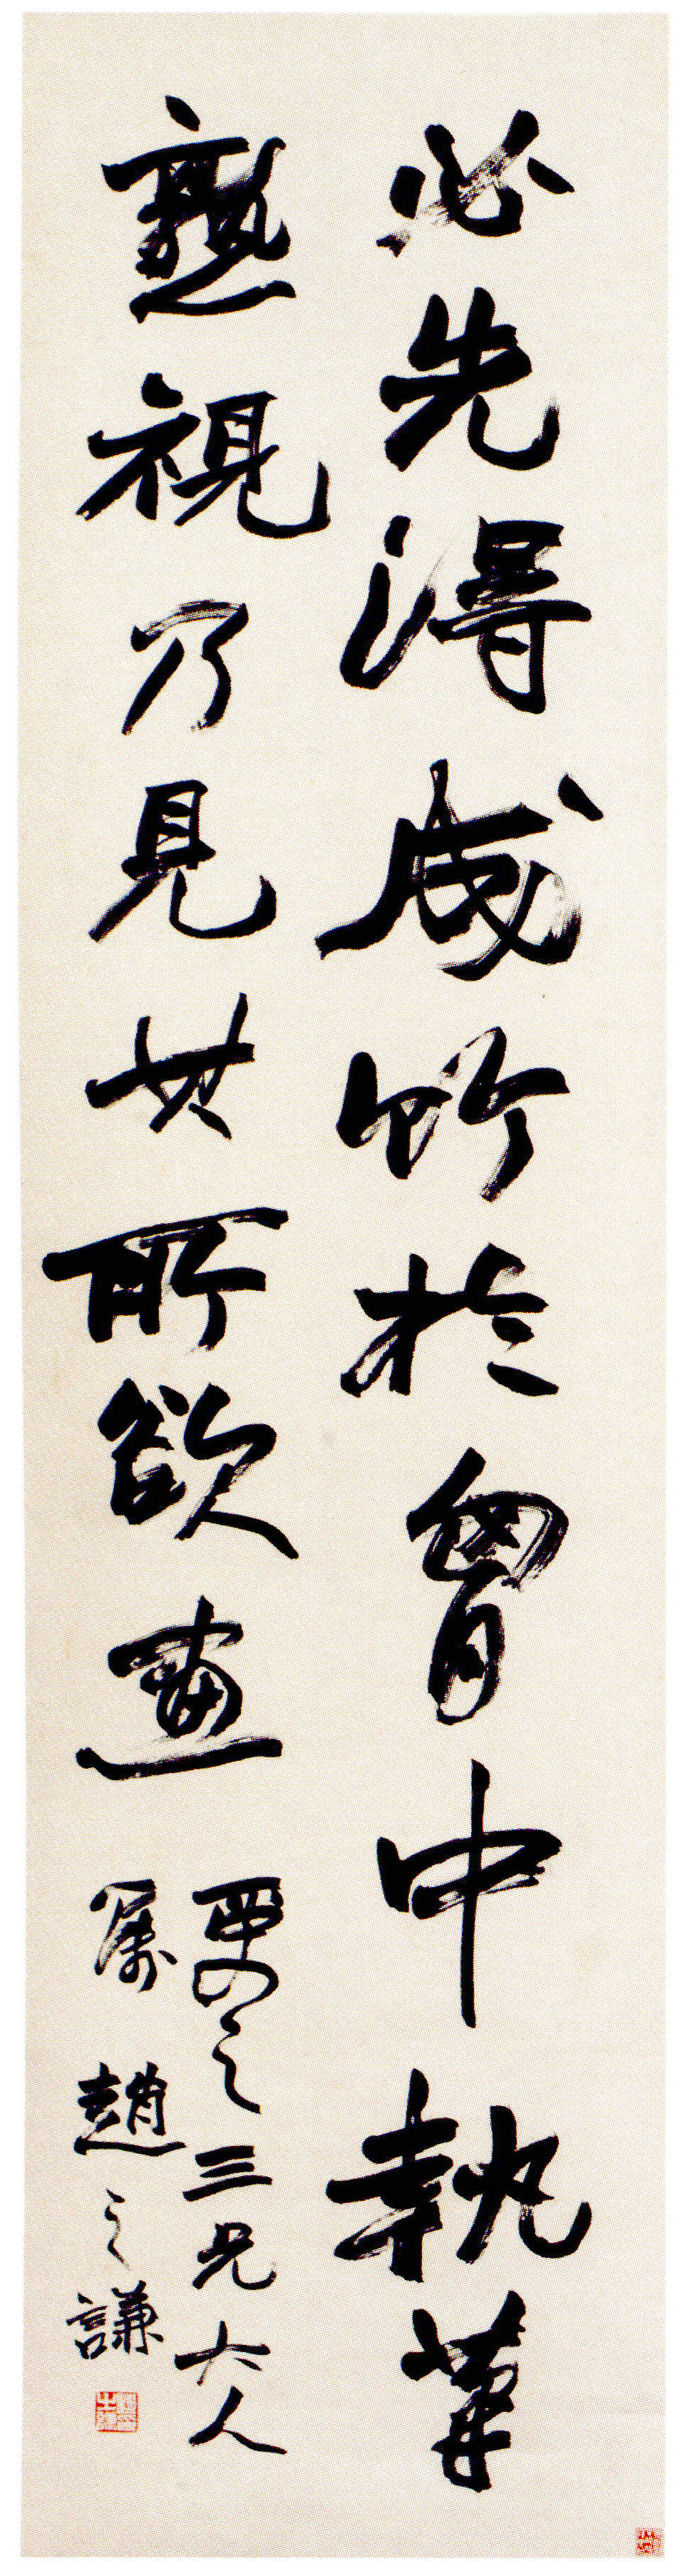 必先得成竹於胷中執筆
熟視乃見其所欲畫
更之三兄大人
属 趙之謙